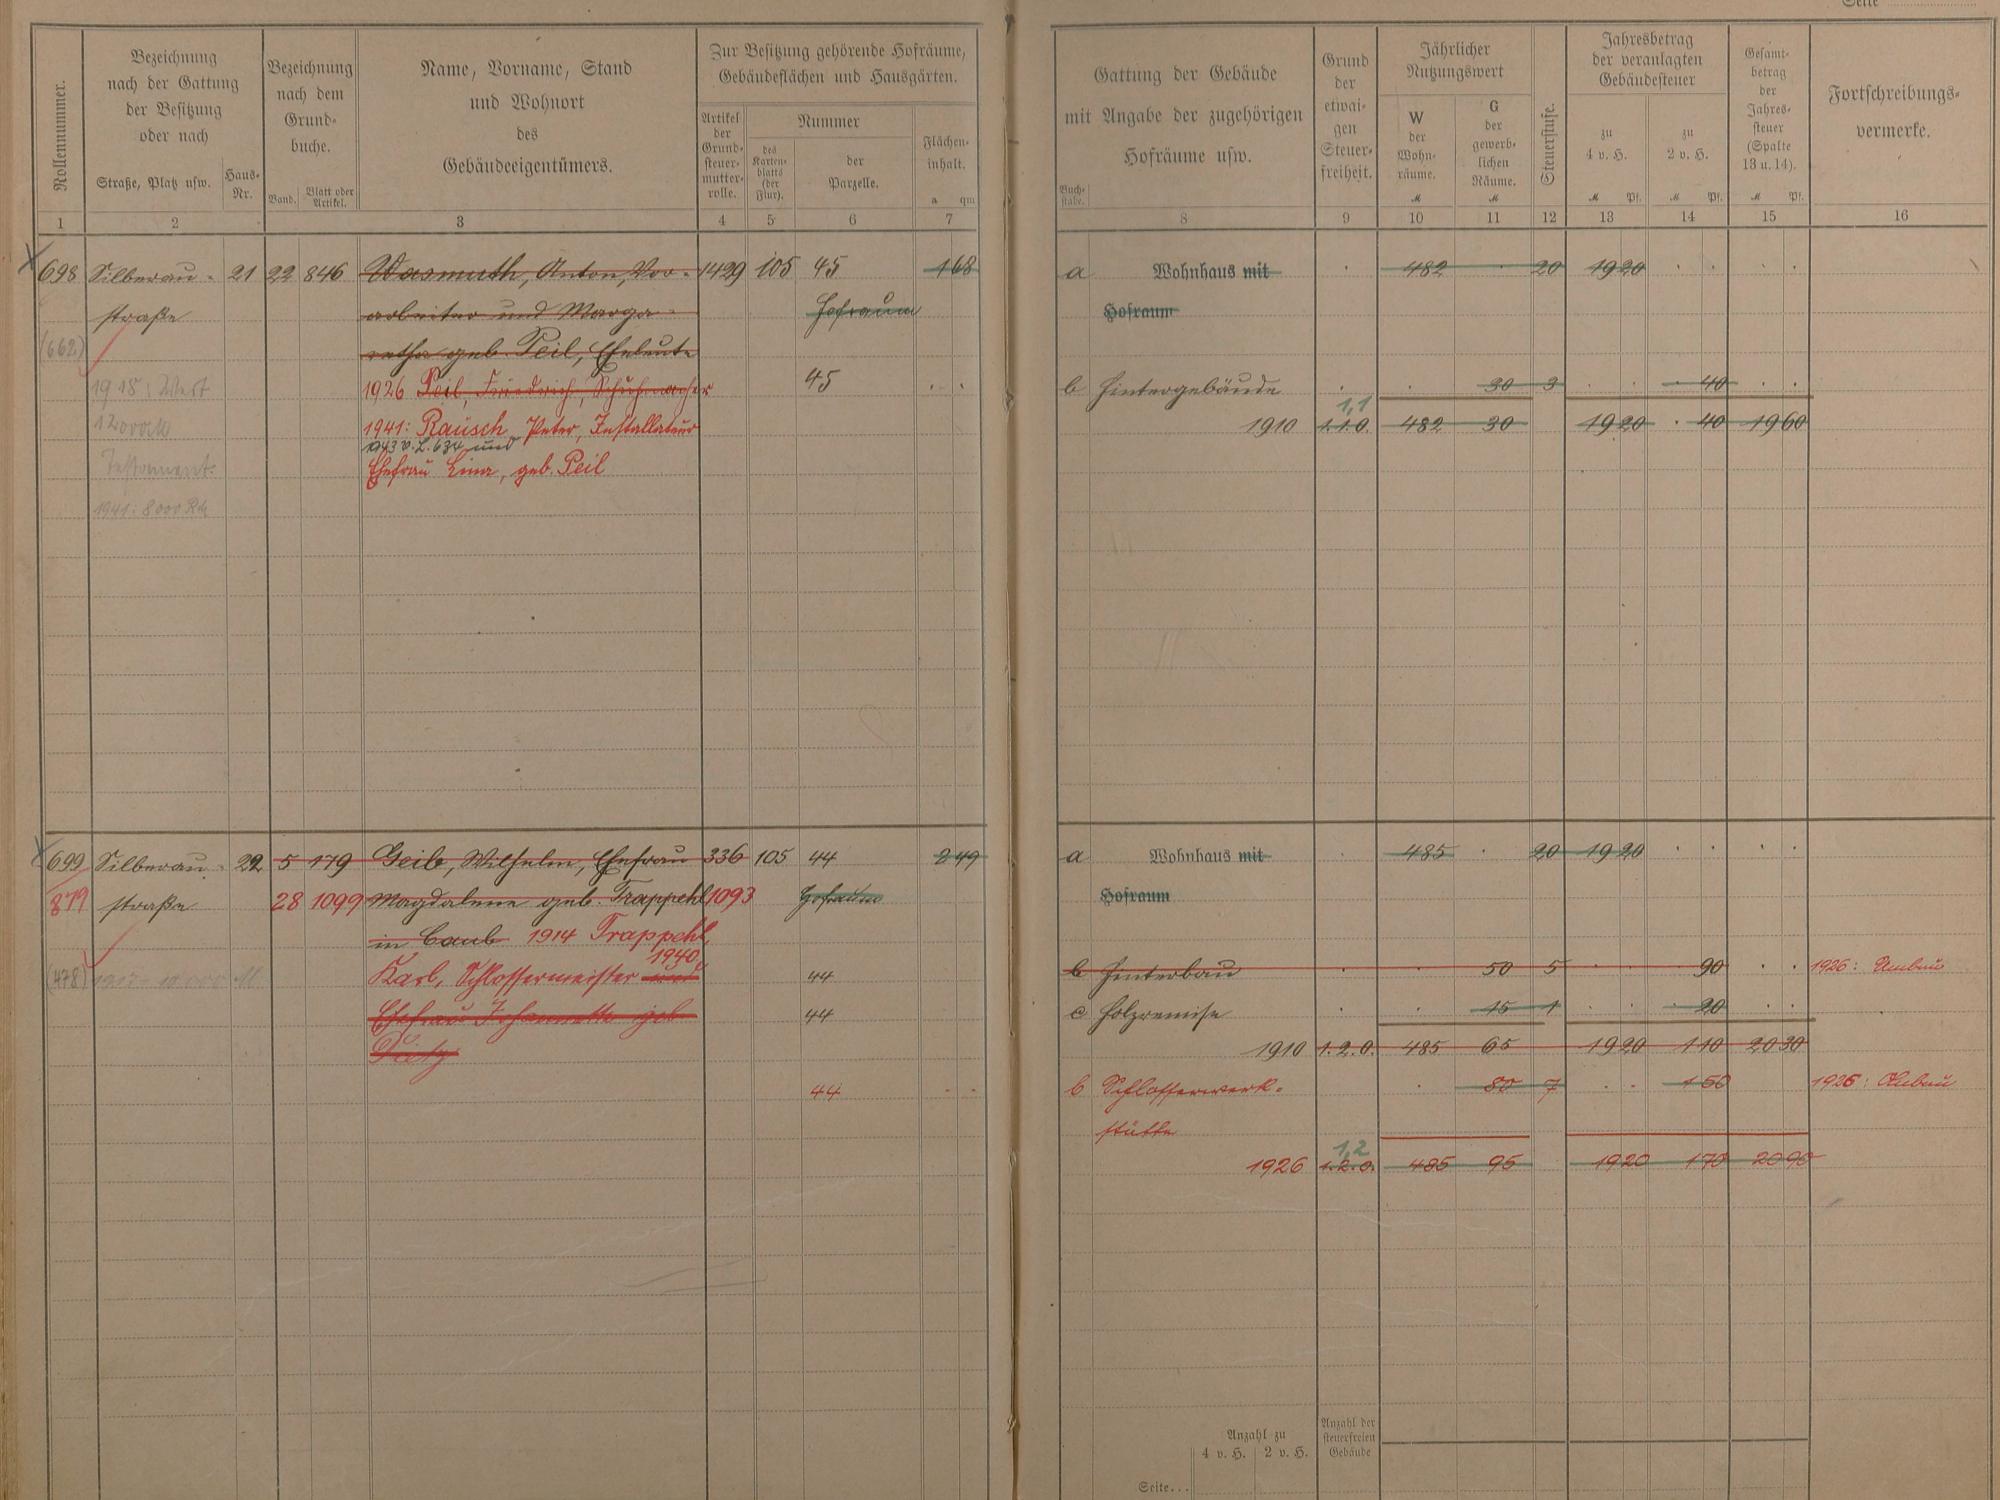 Seite
Rollennummer.
Bezeichnung
nach der Gattung
der Besitzung
oder nach
Straße, Platz usw.
Haus-
Nr.
Bezeichnung
nach dem
Grund-
buche.
Band.
Blatt oder
Artikel.
Name, Vorname, Stand
und Wohnort
des
Gebäudeeigentümers.
Zur Besitzung gehörende Hofräume,
Gebäudeflächen und Hausgärten.
Artikel
der
Grund-
steuer-
mutter-
rolle.
Nummer
des
Karten-
blatts
(der
Flur).
der
Parzelle.
Flächen-
inhalt.
a qm
1 2 3 4 5 6 7
698 Silberau- 21 22 846 Wasmuth, Anton, Vor- 1429 105 45 1 68
straße arbeiter und Marga- Hofraum
(662) retha geb. Peil, Eheleute
1918: Wert 1926 Peil, Friedrich, Schuhmacher 45 . .
12000M 1941: Rausch, Peter, Installateur
1943 v. L. 634 und
Testament. Ehefrau Lina, geb. Peil
1941: 8000 RM
699 Silberau- 22 5 179 Geib, Wilhelm, Ehefrau 336 105 44 2 49
879 straße 28 1099 Magdalena geb. Trappehl 1093 Hofraum
in Caub 1914 Trappehl,
1940
(478) 1917 - 10000 M Karl, Schlossermeister und 44
Ehefrau Johannette geb. 44
44 . .
Gattung der Gebäude
mit Angabe der zugehörigen
Hofräume usw.
Buch-
stabe.
Grund
der
etwai-
gen
Steuer-
freiheit.
Jährlicher
Nutzungswert
W
der
Wohn-
räume.
M
G
der
gewerb-
lichen
Räume.
M
Steuerstufe.
Jahresbetrag
der veranlagten
Gebäudesteuer
zu
4 v. H.
M Pf.
zu
2 v. H.
M Pf.
Gesamt-
betrag
der
Jahres-
steuer
(Spalte
13 u. 14).
M Pf.
Fortschreibungs-
vermerke.
8 9 10 11 12 13 14 15 16
a Wohnhaus mit . 482 . 20 19 20 . . . .
Hofraum
b Hintergebäude . . 30 3 . . . 40 . .
1,1
1910 1.1.0. 482 30 19 20 . 40 19 60
a Wohnhaus mit . 485 . 20 19 20 . . . .
Hofraum
b Hinterbau . . 50 5 . . 90 . . 1926: Umbau
c Holzremise . . 15 1 . . . 20 . . .
1910 1.2.0. 485 65 19 20 1 10 20 30
b Schlosserwerk- . 80 7 . . 1 50 1926: Anbau
stätte
1,2
1926 1.2.0. 485 95 19 20 1 70 20 90
Anzahl zu
4 v. H. 2 v. H.
Anzahl der
steuerfreien
Gebäude
Seite...